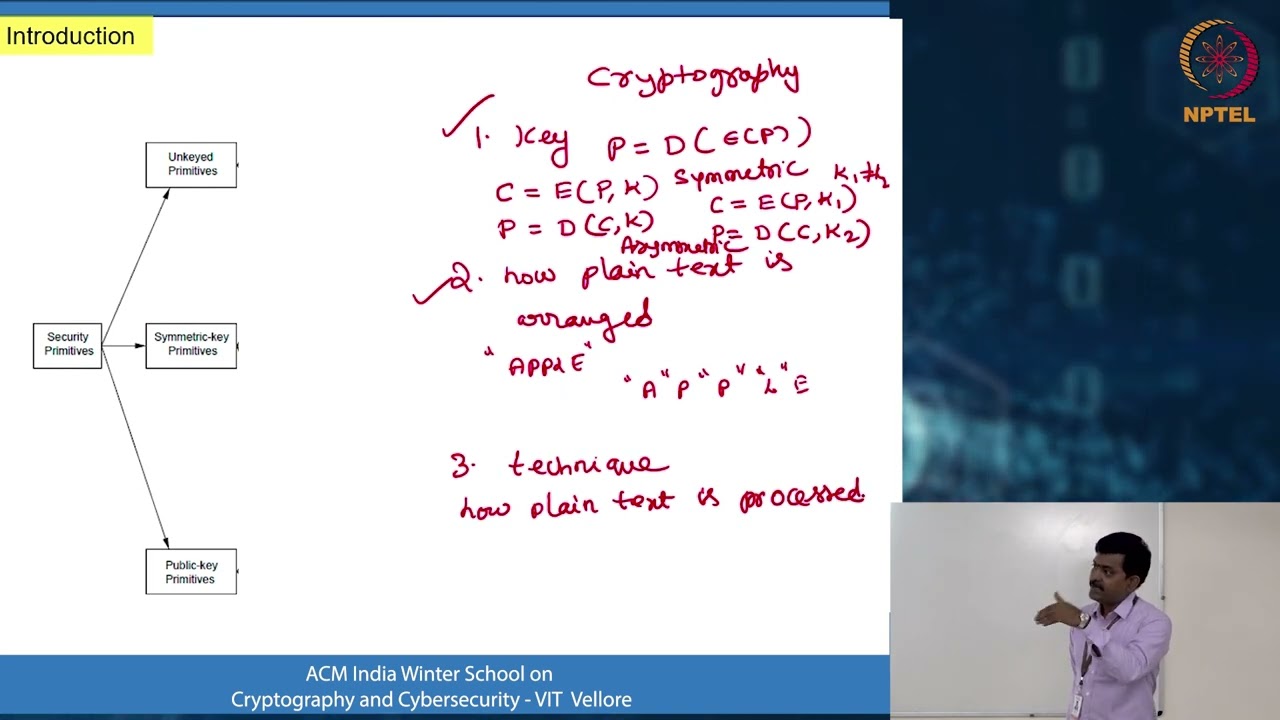 Introduction
NPTEL
Unkeyed
Primitives
Security
Primitives
Symmetric-key
Primitives
Public-key
Primitives
Cryptography
1. Key P = D(E(P))
C = E(P, K) Symmetric K1≠K2
P = D(C, K) C = E(P, K1)
Asymmetric P = D(C, K2)
2. how plain text is
arranged
"APPLE"
"A" P "P" "L" E
3. technique
how plain text is processed.
ACM India Winter School on
Cryptography and Cybersecurity - VIT Vellore